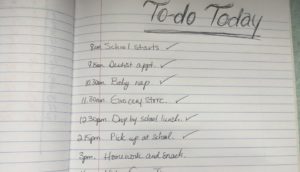 To-do Today
8am School starts ✓
9:15am Dentist appt. ✓
10:30am Baby nap ✓
11:30am Grocery store ✓
12:30pm Drop by school lunch ✓
2:15pm Pick up at school ✓
3pm Homework and snack.